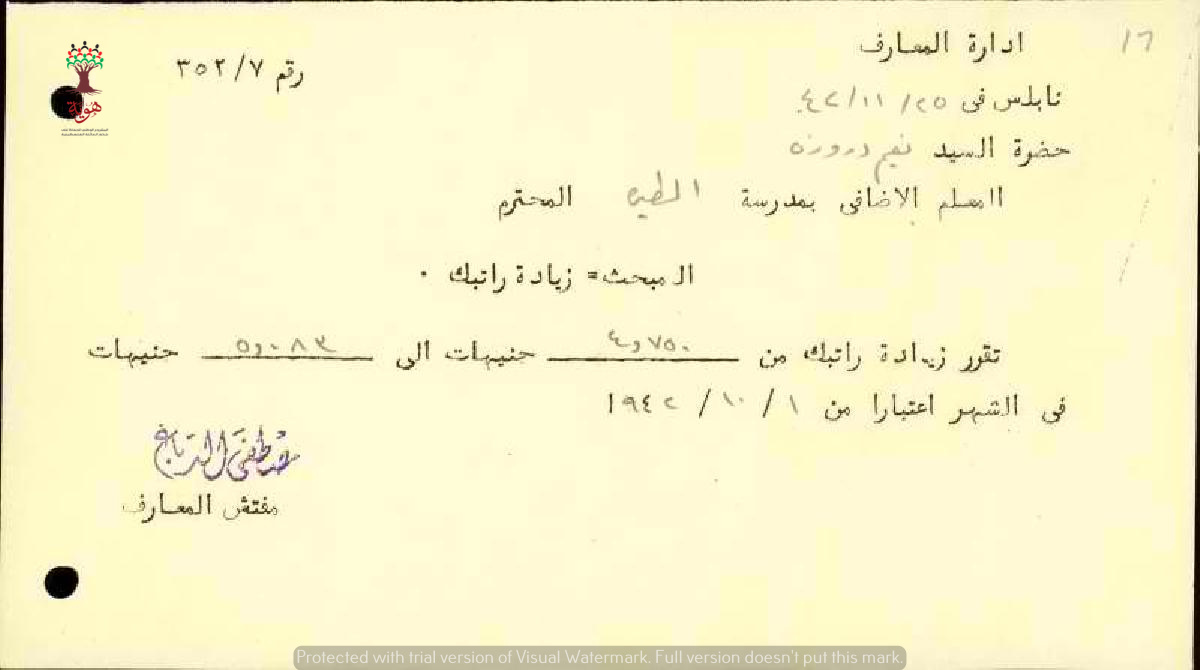 ١٦
ادارة المعارف
رقم ٣٥٢/٧
نابلس فى ٢٥/ ١١/ ٤٢
حضرة السيد نعيم دروزه
المعلم الاضافى بمدرسة الطيره المحترم
المبحث= زيادة راتبك ٠
تقرر زيادة راتبك من ٤و٧٥٠ حنيهات الى ٥و٠٨٣ حنيهات
فى الشهر اعتبارا من ١ / ١٠ / ١٩٤٢
مصطفى الدباغ
مفتش المعارف
هوية
Protected with trial version of Visual Watermark. Full version doesn't put this mark.